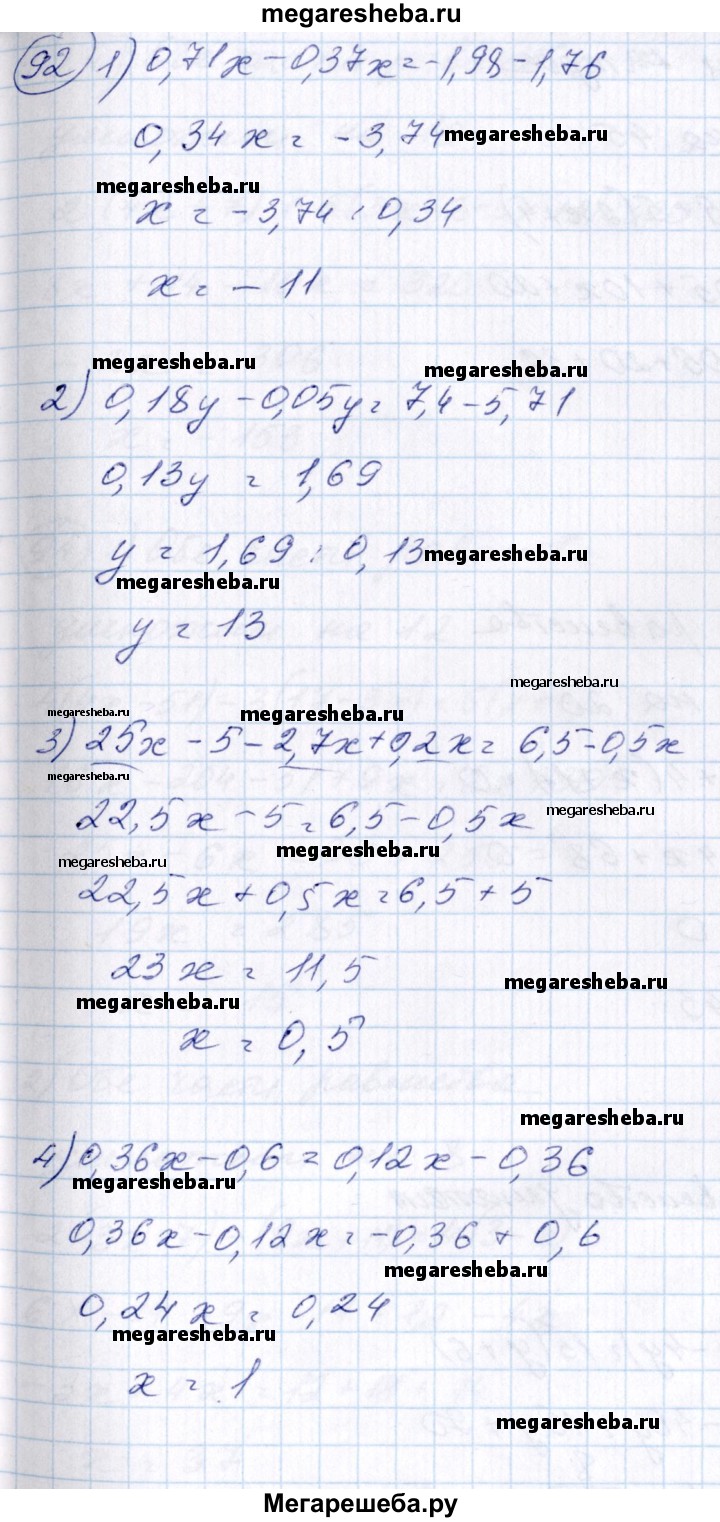 megaresheba.ru
92 1) 0,71x - 0,37x = -1,98 - 1,76
0,34x = -3,74 megaresheba.ru
megaresheba.ru
x = -3,74 : 0,34
x = -11
megaresheba.ru megaresheba.ru
2) 0,18y - 0,05y = 7,4 - 5,71
0,13y = 1,69
y = 1,69 : 0,13 megaresheba.ru
megaresheba.ru
y = 13
megaresheba.ru
megaresheba.ru megaresheba.ru
3) 25x - 5 - 2,7x + 0,2x = 6,5 - 0,5x
megaresheba.ru
22,5x - 5 = 6,5 - 0,5x megaresheba.ru
megaresheba.ru megaresheba.ru
22,5x + 0,5x = 6,5 + 5
23x = 11,5 megaresheba.ru
megaresheba.ru
x = 0,5
megaresheba.ru
4) 0,36x - 0,6 = 0,12x - 0,36
megaresheba.ru
0,36x - 0,12x = -0,36 + 0,6
megaresheba.ru
0,24x = 0,24
megaresheba.ru
x = 1
megaresheba.ru
Мегарешеба.ру